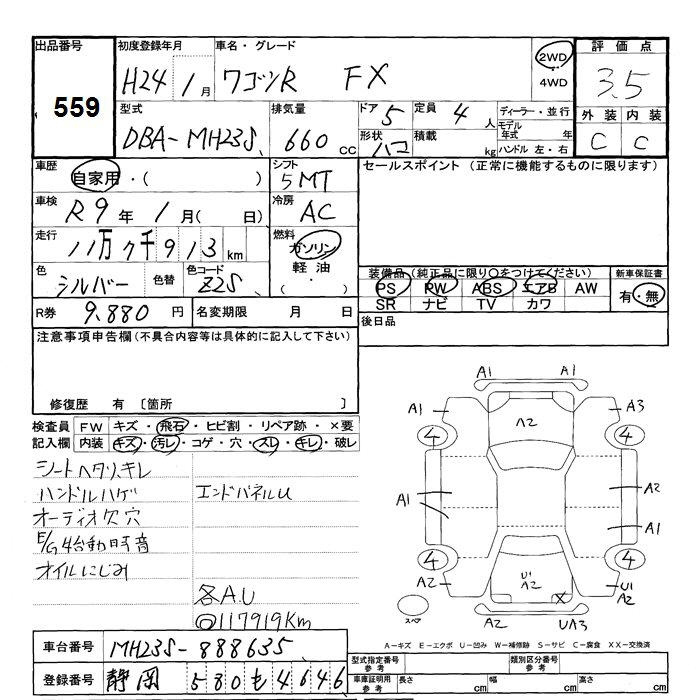 出品番号 初度登録年月 車名・グレード 評価点
559 H24 1月 ワゴンR FX 2WD 4WD 3.5
型式 排気量 ドア 5 定員 4人 ディーラー・並行 外装 内装
DBA-MH23S 660cc 形状 ハコ 積載 kg モデル年式 年 ハンドル 左・右 C C
車歴 自家用・( ) シフト 5MT セールスポイント (正常に機能するものに限ります)
車検 R9年 1月( 日) 冷房 AC
走行 11万7千913km 燃料 ガソリン 軽油 ( )
色 シルバー 色替 色コード Z2S 装備品(純正品に限り○をつけてください) 新車保証書
PS PW ABS エアB AW 有・無
SR ナビ TV カワ
R券 9.880円 名変期限 月 日 後日品
注意事項申告欄(不具合内容等は具体的に記入して下さい)
修復歴 有 〔箇所 〕
検査員記入欄 FW キズ・飛石・ヒビ割・リペア跡・×要
内装 キズ・汚レ・コゲ・穴・スレ・キレ・破レ
シートヘタリ、キレ
ハンドルハゲ エンドパネルU
オーディオ欠穴
E/G始動時音
オイルにじみ
各A.U
◎117919Km
A1
A1 A3
A2
4 4
A1 A2
A1
4 4
A2 U1 A2 X U1 A2
スペア A2 UA3
A-キズ E-エクボ U-凹み W-補修跡 S-サビ C-腐食 XX-交換済
車台番号 MH23S-888635
型式指定番号 参考 類別区分番号 参考
登録番号 静岡 580も4646
車庫証明用 参考 長さ cm 幅 cm 高さ cm